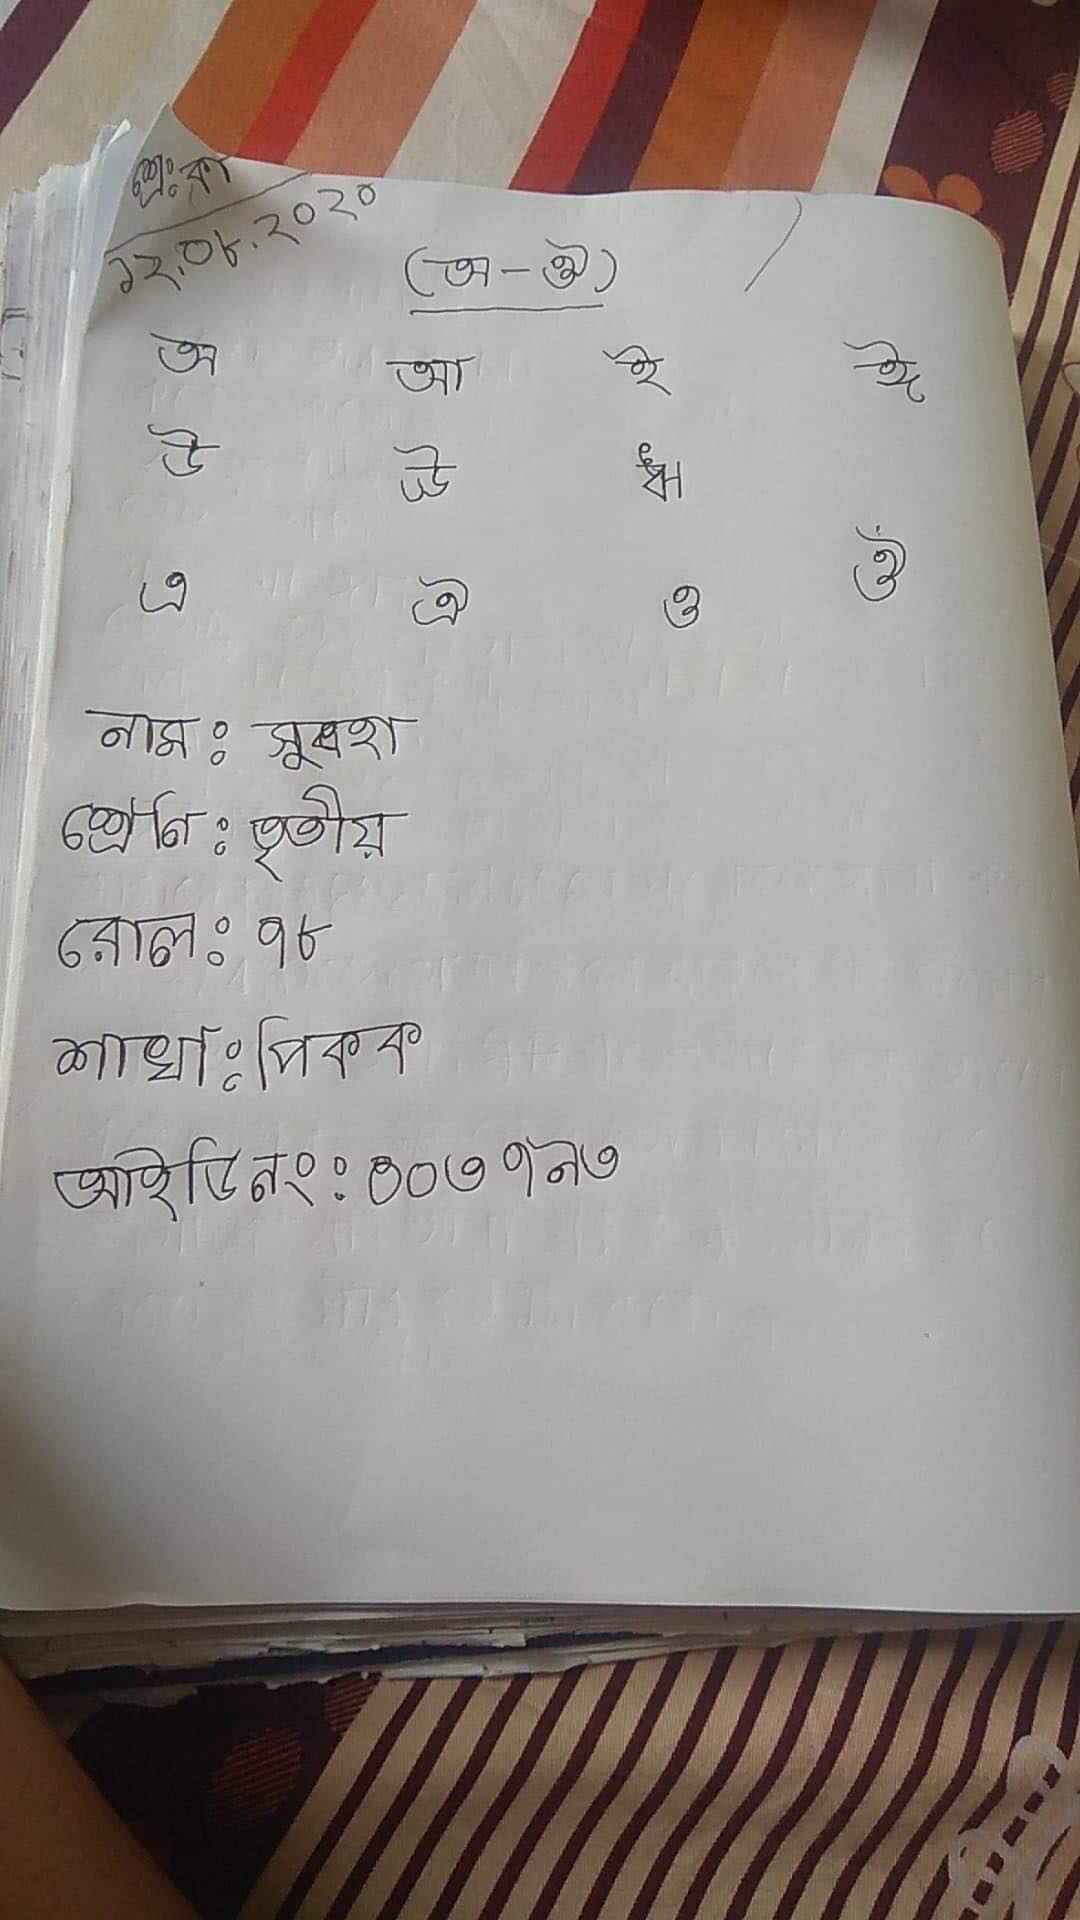 শ্রে: কা
১২.০৮.২০২০
(অ-ঔ)
অ আ ই ঈ
উ ঊ ঋ
এ ঐ ও ঔ
নাম:
শ্রেনি: তৃতীয়
রোল: ৭৮
শাখা: পিকক
আইডি নং: ৪০৩৭৯৩